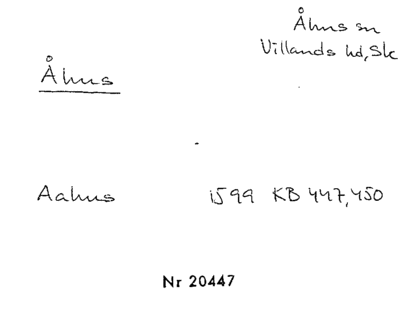 Åhus sn
Villands hd, Sk
Åhus
Aahus 1599 KB 447,450
Nr 20447